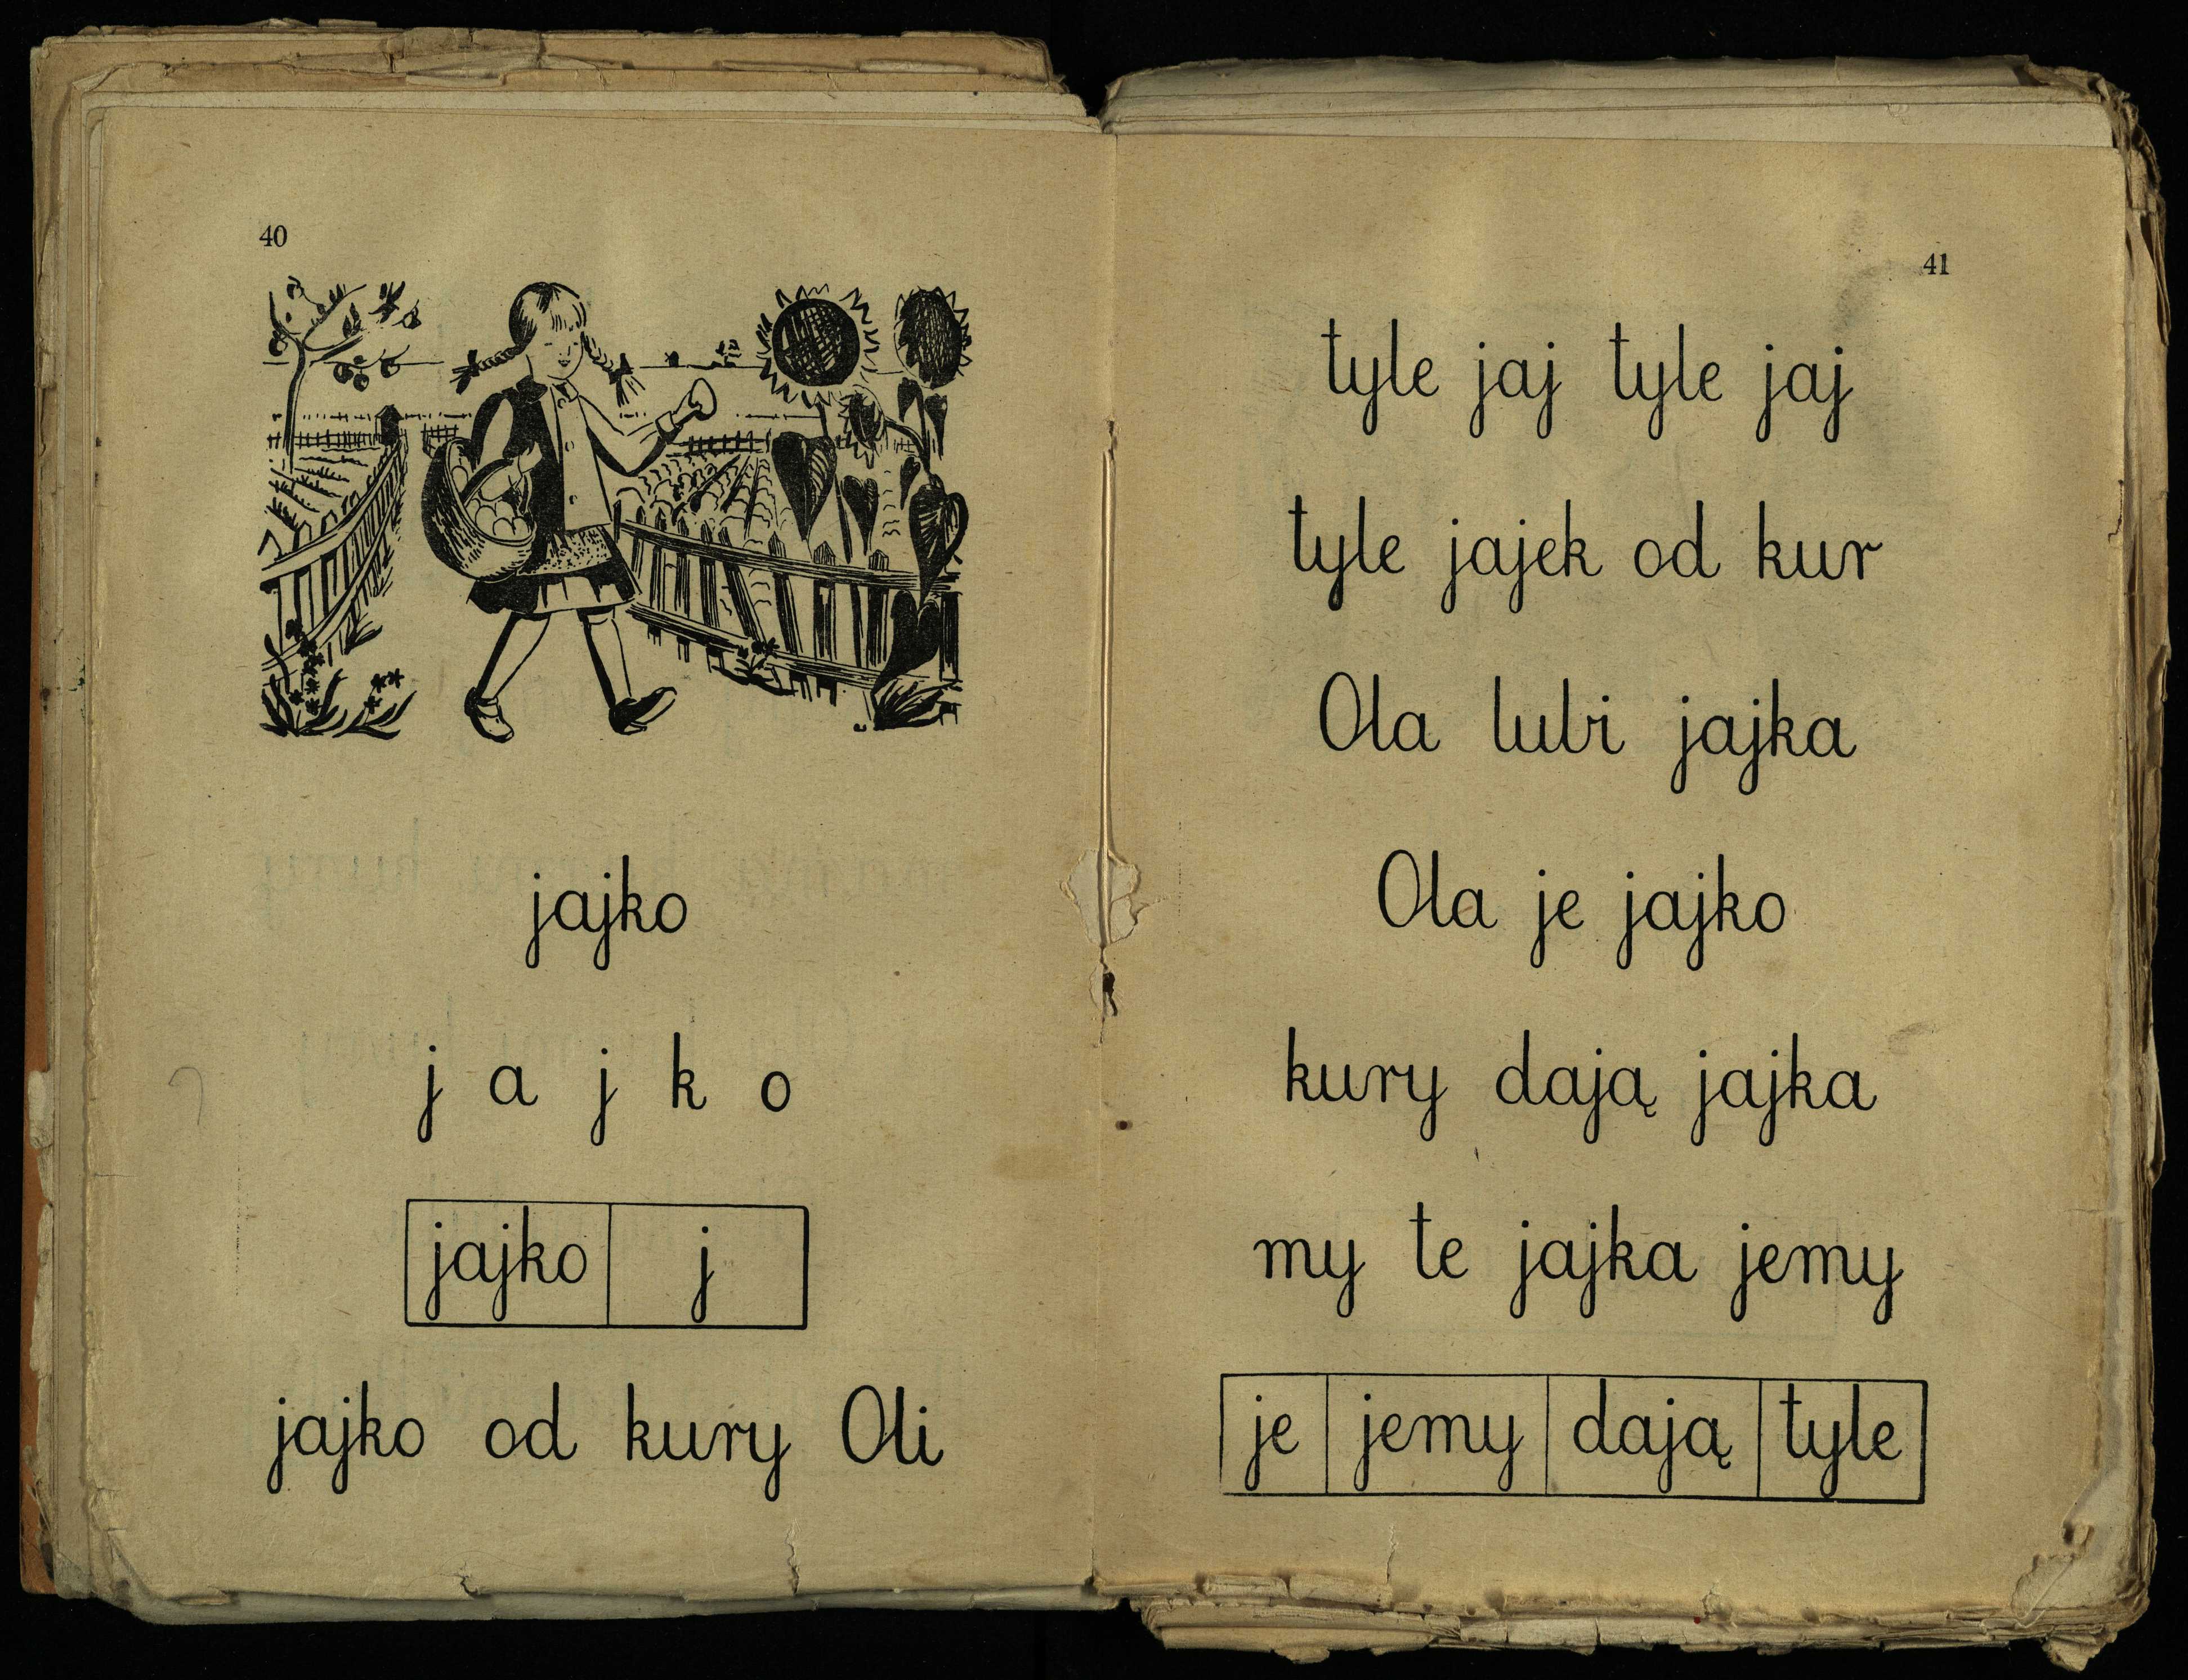 40
jajko
j a j k o
jajko j
jajko od kury Oli
41
tyle jaj tyle jaj
tyle jajek od kur
Ola lubi jajka
Ola je jajko
kury dają jajka
my te jajka jemy
je jemy dają tyle